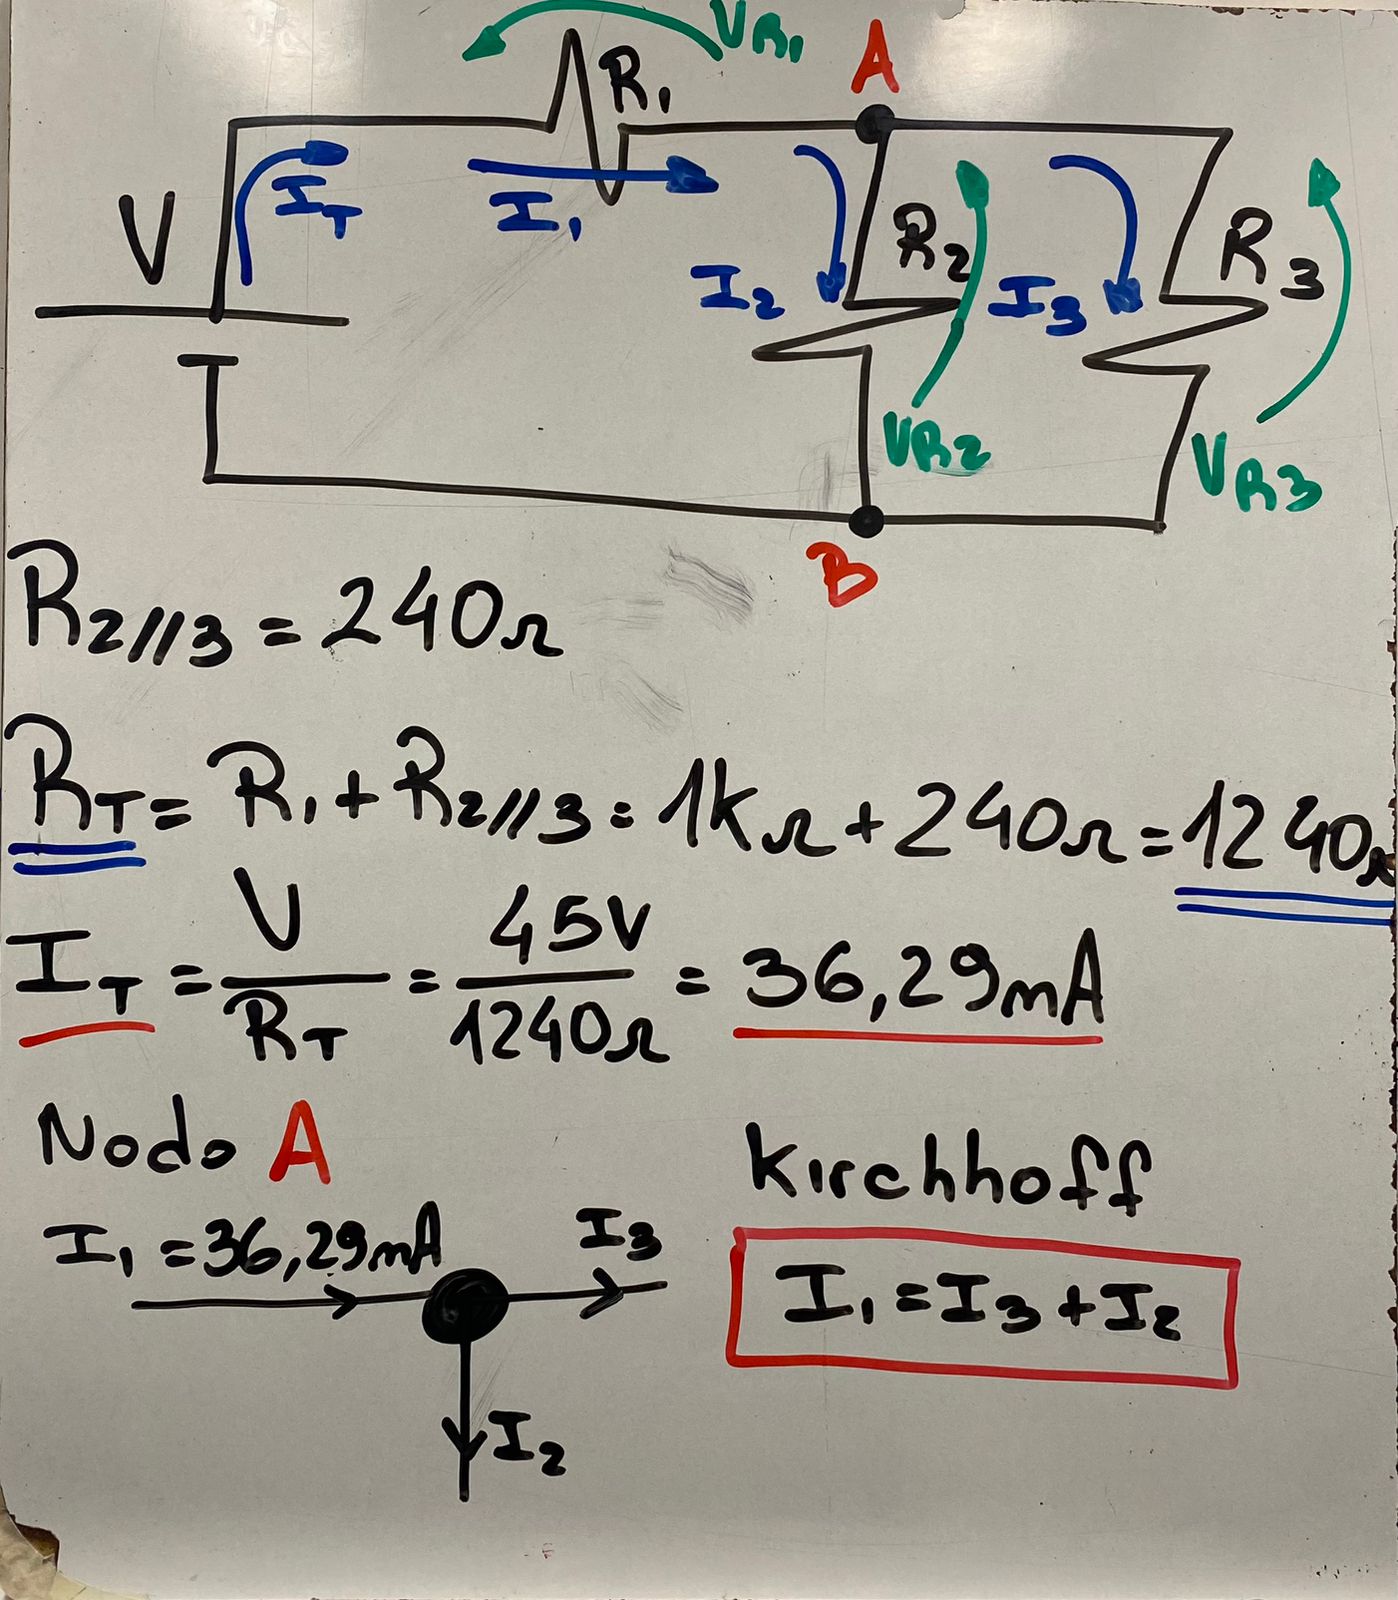 VR1
A
R1
V
IT
I1
R2
R3
I2
I3
VR2
VR3
B
R2//3 = 240Ω
RT = R1 + R2//3 = 1kΩ + 240Ω = 1240Ω
IT = V/RT = 45V/1240Ω = 36,29mA
Nodo A
Kirchhoff
I1 = 36,29mA
I3
I1 = I3 + I2
I2